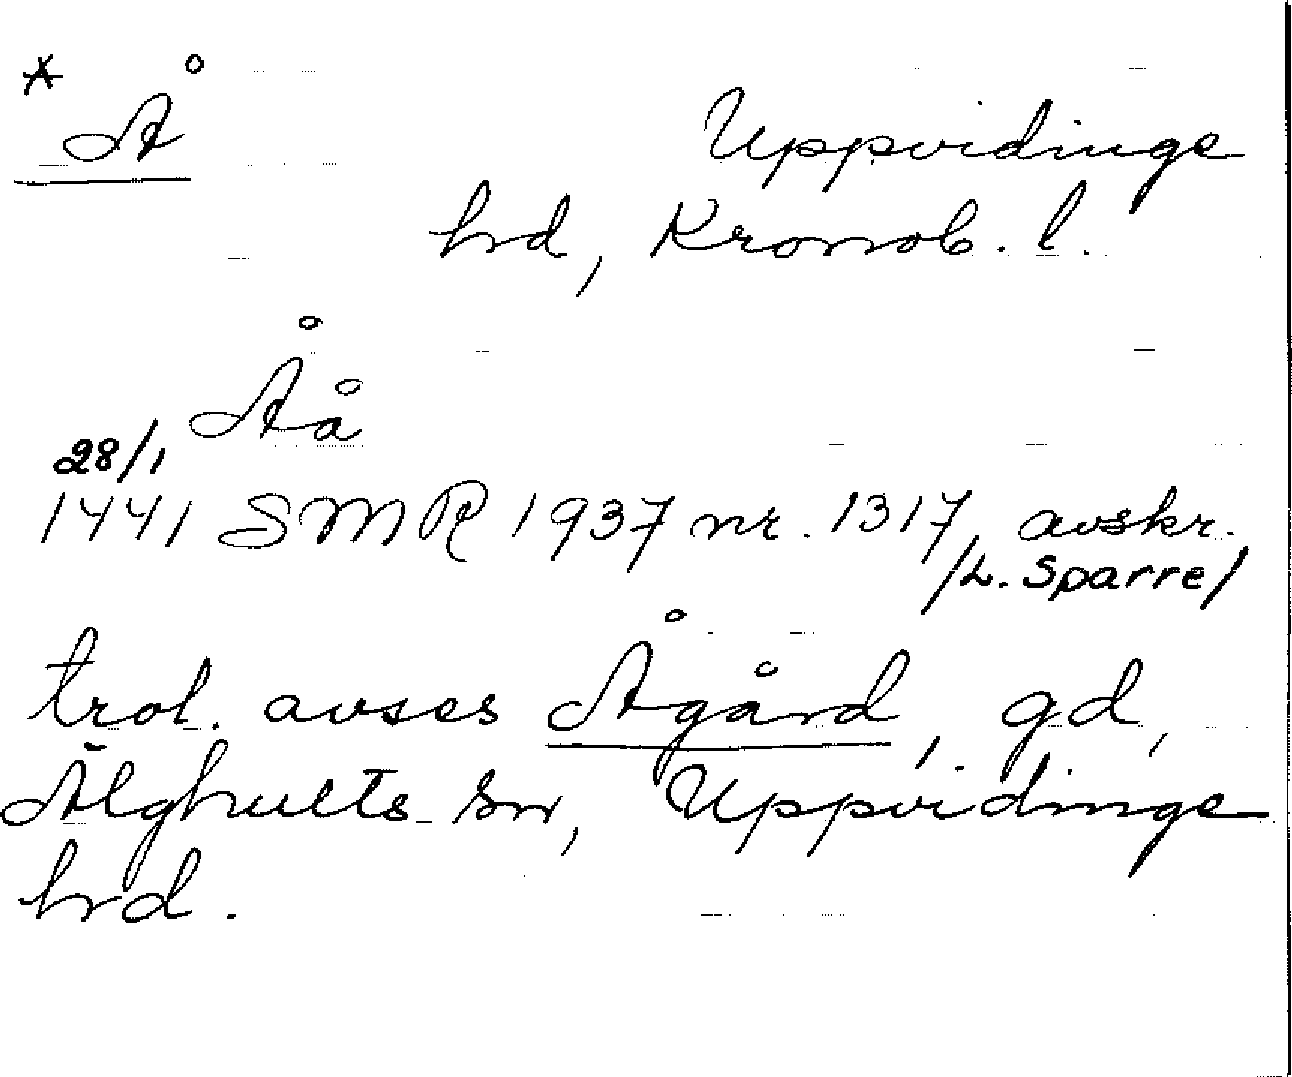 * Å Uppvidinge
hrd, Kronob. l.
Åå
28/1
1441 SMR 1937 nr. 1317, avskr.
/L. Sparre/
trol. avses Ågård, gd,
Älghults sn, Uppvidinge
hrd.